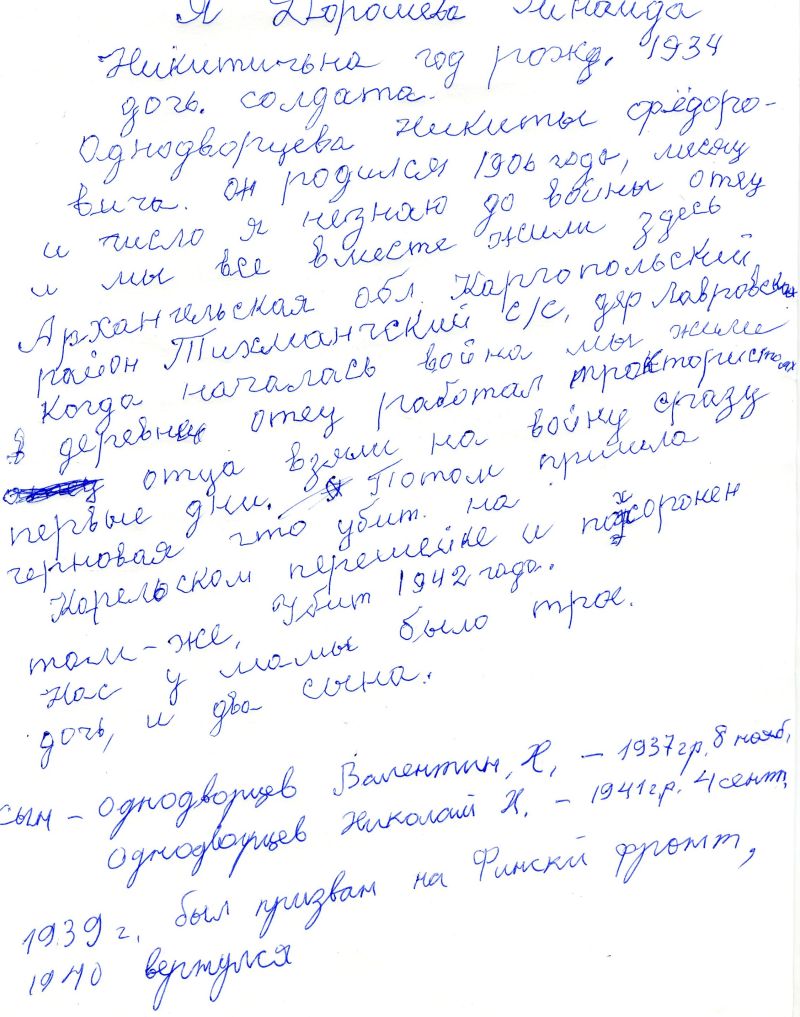 Я Дорошева Зинаида
Никитична год рожд. 1934
дочь. солдата.
Однодворцева Никиты Фёдоро-
вича. он родился 1906 года, месяц
и число я незнаю до войны отец
и мы все вместе жили здесь
Архангельская обл. Каргопольский
район Тихманчский с/с, дер Лавровская
Когда началась война мы жили
в деревне отец работал трактористом
отца взяли на войну сразу
первые дни. Потом пришла
черновая что убит. на
Карельском перешейке и похоронен
там-же, Убит 1942 года.
Нас у мамы было трое.
дочь, и два сына.
сын - Однодворцев Валентин, Н, - 1937 гр. 8 нояб,
Однодворцев Николай Н. - 1941 гр. 4 сент,
1939 г, был призван на Финскй фронт,
1940 вернулся